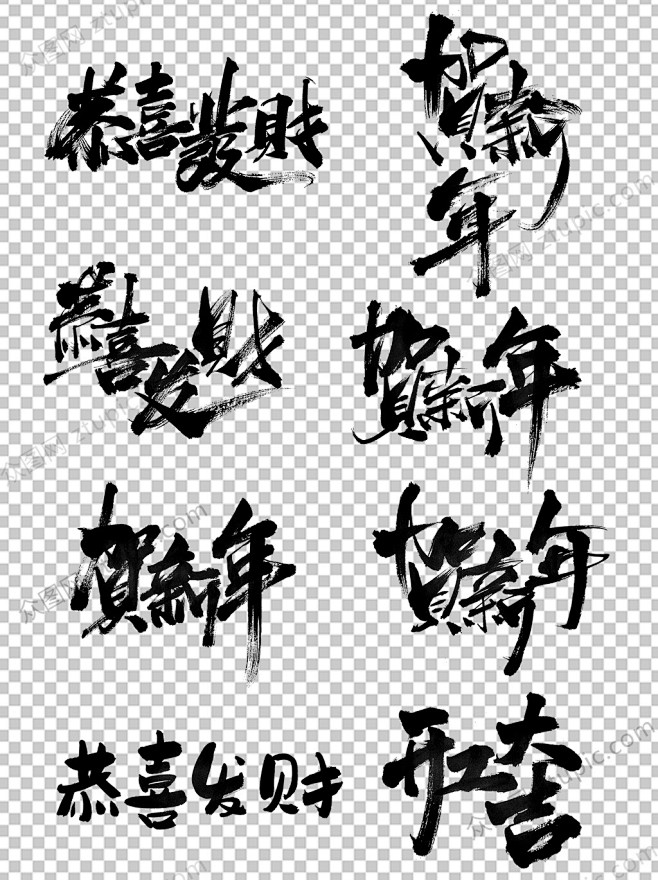 恭喜發財
賀新年
恭喜发財
賀新年
賀新年
賀新年
恭喜发财
开工大吉
众图网 ztupic.com